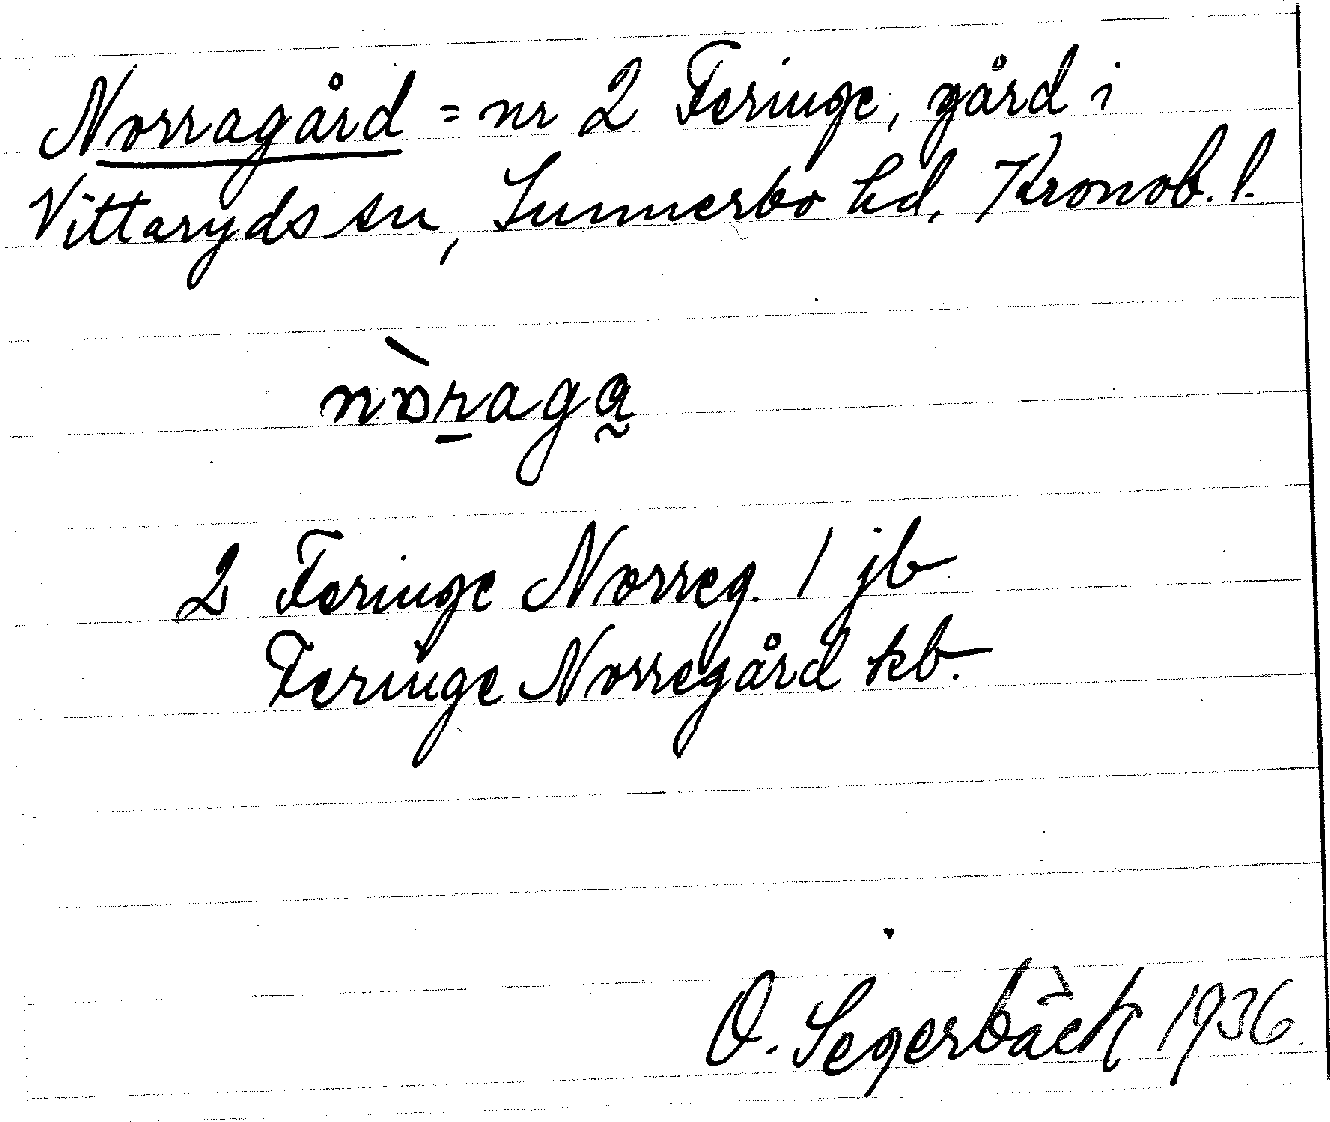 Norragård = nr 2 Feringe, gård i
Vittaryds sn, Sunnerbo hd, Kronob. l.
nòraga
2 Feringe Norreg. 1 jb
Feringe Norregård kb.
O. Segerbäck 1936